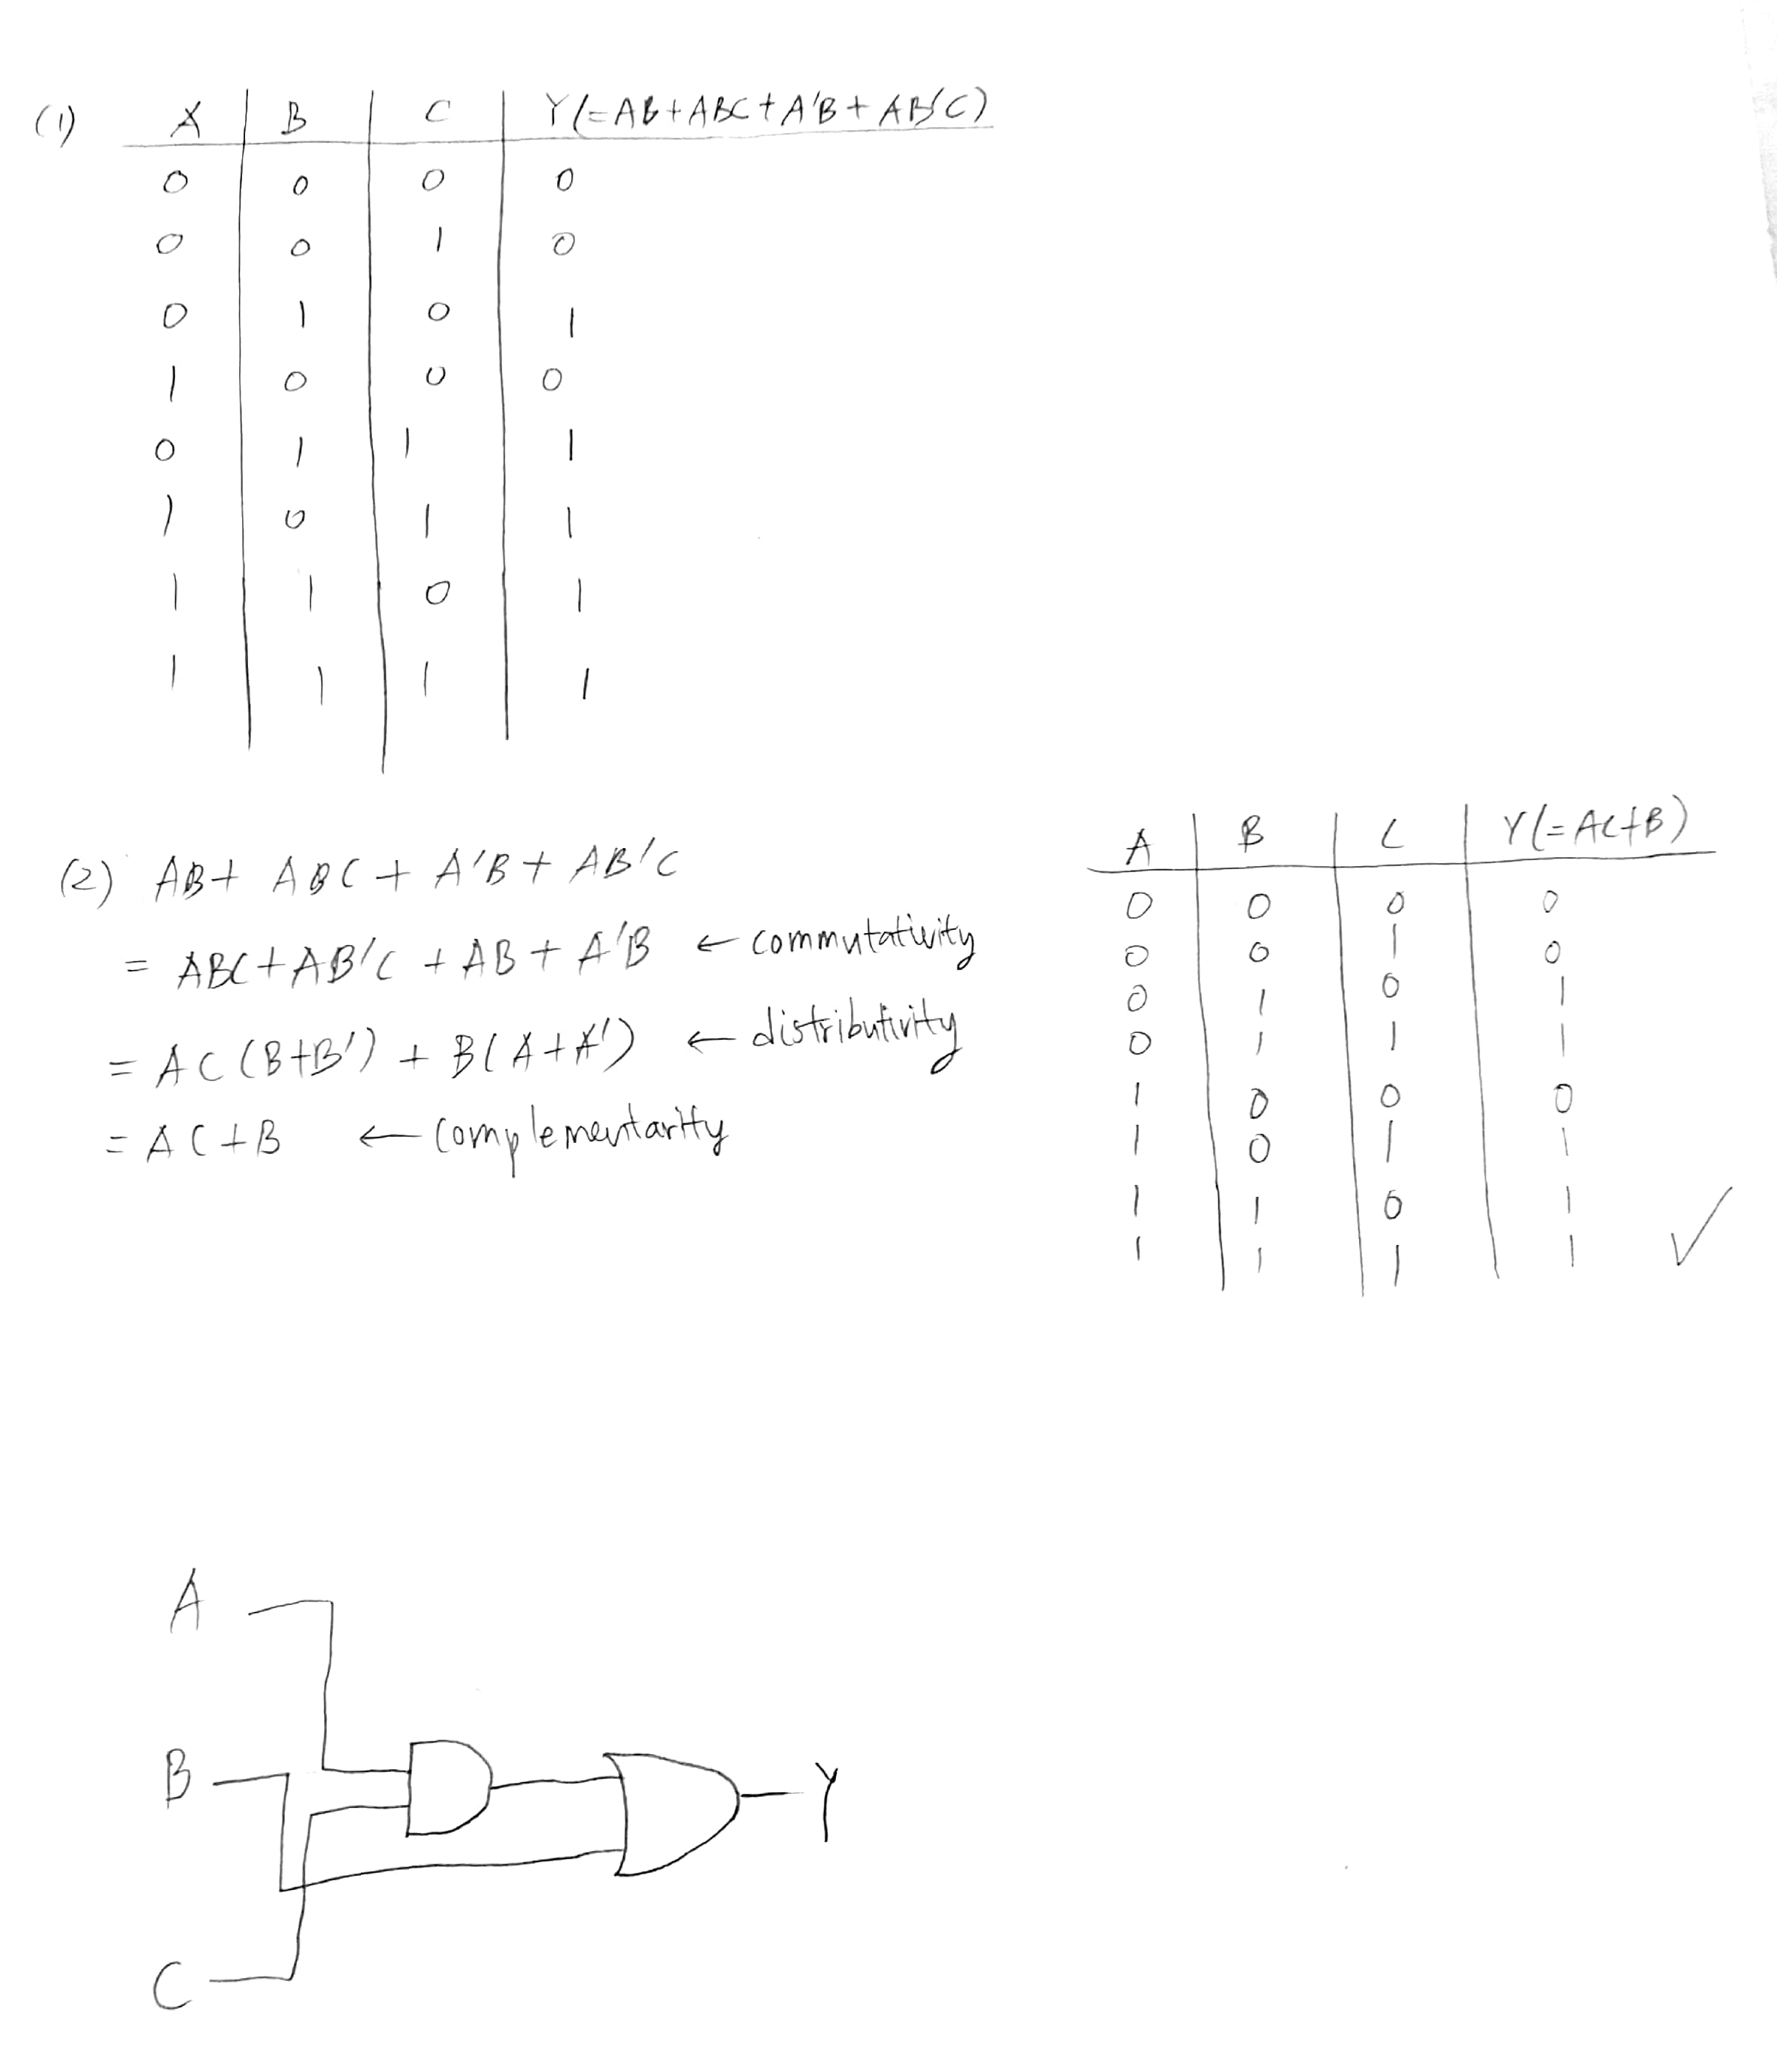 (1) A B C Y(=AB+ABC+A'B+AB'C)
0 0 0 0
0 0 1 0
0 1 0 1
1 0 0 0
0 1 1 1
1 0 1 1
1 1 0 1
1 1 1 1
(2) AB+ ABC + A'B + AB'C
= ABC+AB'C + AB + A'B ← commutativity
= AC(B+B') + B(A+A') ← distributivity
= AC+B ← complementarity
A B C Y(=AC+B)
0 0 0 0
0 0 1 0
0 1 0 1
0 1 1 1
1 0 0 0
1 0 1 1
1 1 0 1
1 1 1 1 ✓
A
B
Y
C